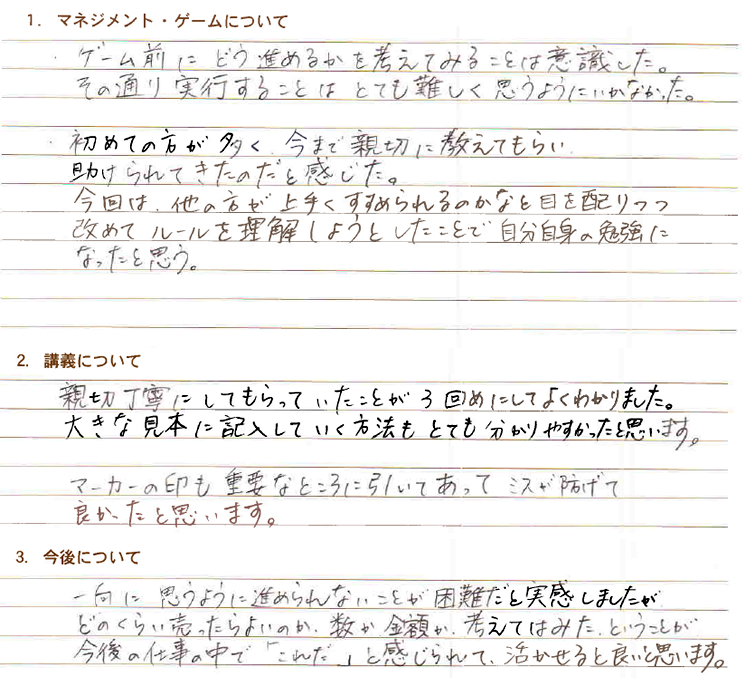 1. マネジメント・ゲームについて
・ゲーム前にどう進めるかを考えてみることは意識した。
その通り実行することはとても難しく思うようにいかなかった。
・初めての方が多く、今まで親切に教えてもらい、
助けられてきたのだと感じた。
今回は、他の方が上手くすすめられるのかなと目を配りつつ
改めてルールを理解しようとしたことで自分自身の勉強に
なったと思う。
2. 講義について
親切丁寧にしてもらっていたことが3回めにしてよくわかりました。
大きな見本に記入していく方法もとても分かりやすかったと思います。
マーカーの印も重要なところに引いてあってミスが防げて
良かったと思います。
3. 今後について
一向に思うように進められないことが困難だと実感しましたが、
どのくらい売ったらよいのか、数か金額か、考えてはみた、ということが
今後の仕事の中で「これだ」と感じられて、活かせると良いと思います。